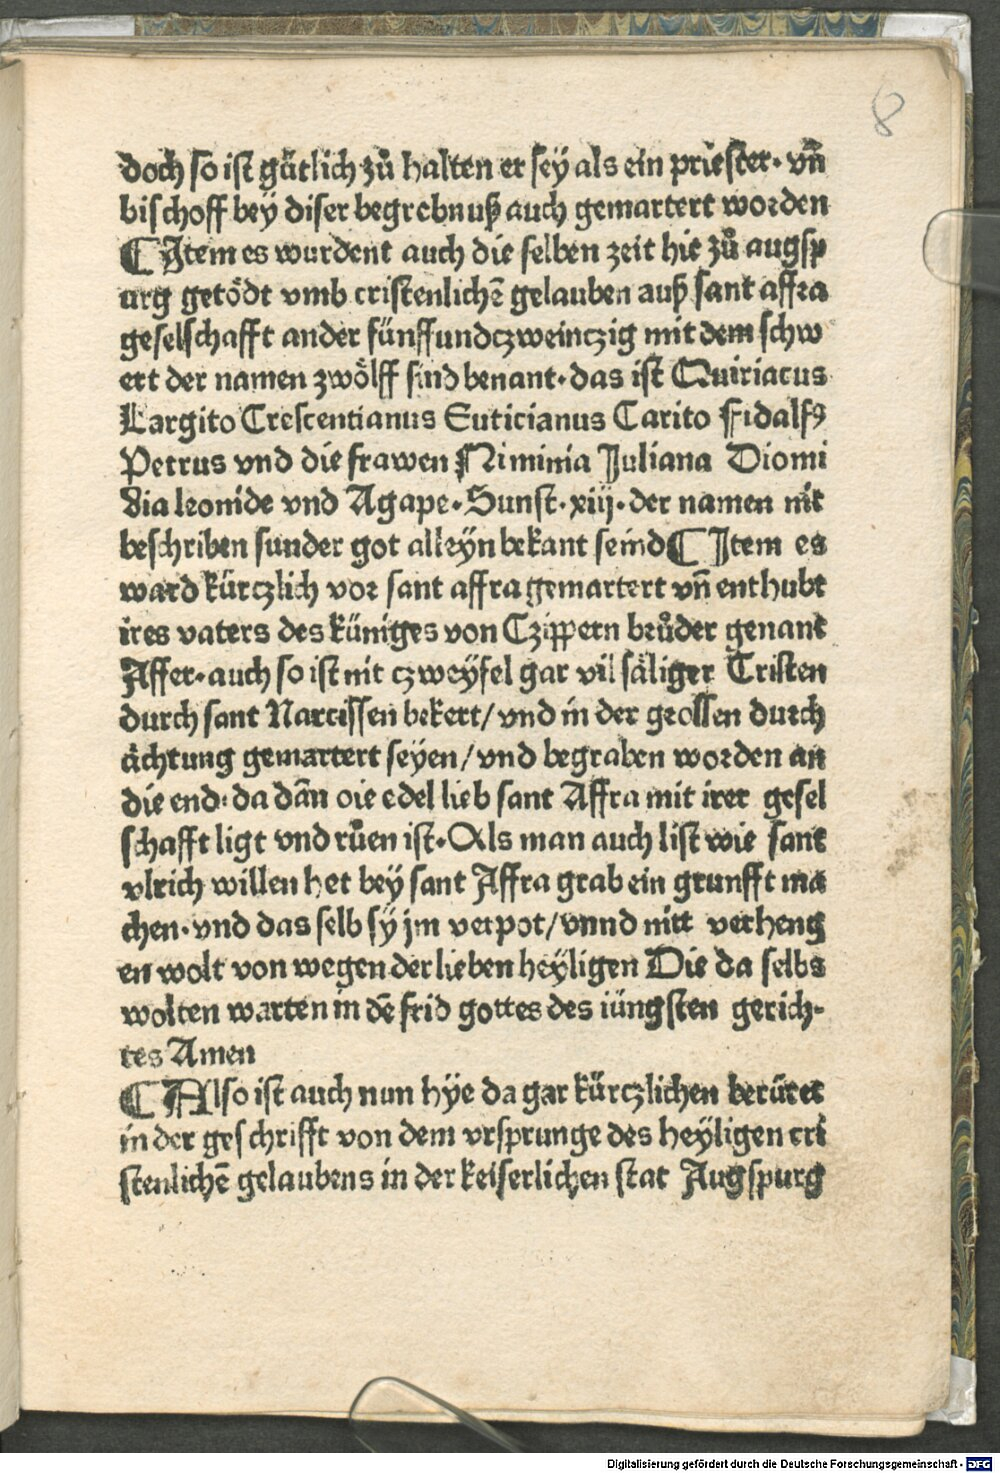 8
doch so ist gütlich zů halten er sey als ein priester· vn̄
bischoff bey diser begrebnuß auch gemartert worden
¶ Item es wurdent auch die selben zeit hie zů augsp
urg getödt vmb cristenlichē gelauben auß sant affra
geselschafft ander fünffundczweinczig mit dem schw
ert der namen zwölff sind benant· das ist Quiriacus
Largito Crescentianus Euticianus Carito Fidalfꝰ
Petrus vnd die frawen Niminia Juliana Diomi
dia leonide vnd Agape· Sunst· xiij· der namen nit
beschriben sunder got alleyn bekant seind ¶ Item es
ward kürczlich vor sant affra gemartert vn̄ enthubt
ires vaters des küniges von Czippern brůder genant
Affer· auch so ist nit czweyfel gar vil säliger Cristen
durch sant Narcissen bekert/ vnd in der grossen durch
ächtung gemartert seyen/ vnd begraben worden an
die end: da dān oie edel lieb sant Affra mit irer gesel
schafft ligt vnd růen ist· Als man auch list wie sant
vlrich willen het bey sant Affra grab ein grunfft ma
chen· vnd das selb sy jm verpot/ vnnd nitt verheng
en wolt von wegen der lieben heyligen Die da selbs
wolten warten in dē frid gottes des iüngsten gerich-
tes Amen
¶ Also ist auch nun hye da gar kürczlichen berüret
in der geschrifft von dem vrsprunge des heyligen cri
stenlichē gelaubens in der keiserlichen stat Augspurg
Digitalisierung gefördert durch die Deutsche Forschungsgemeinschaft - DFG